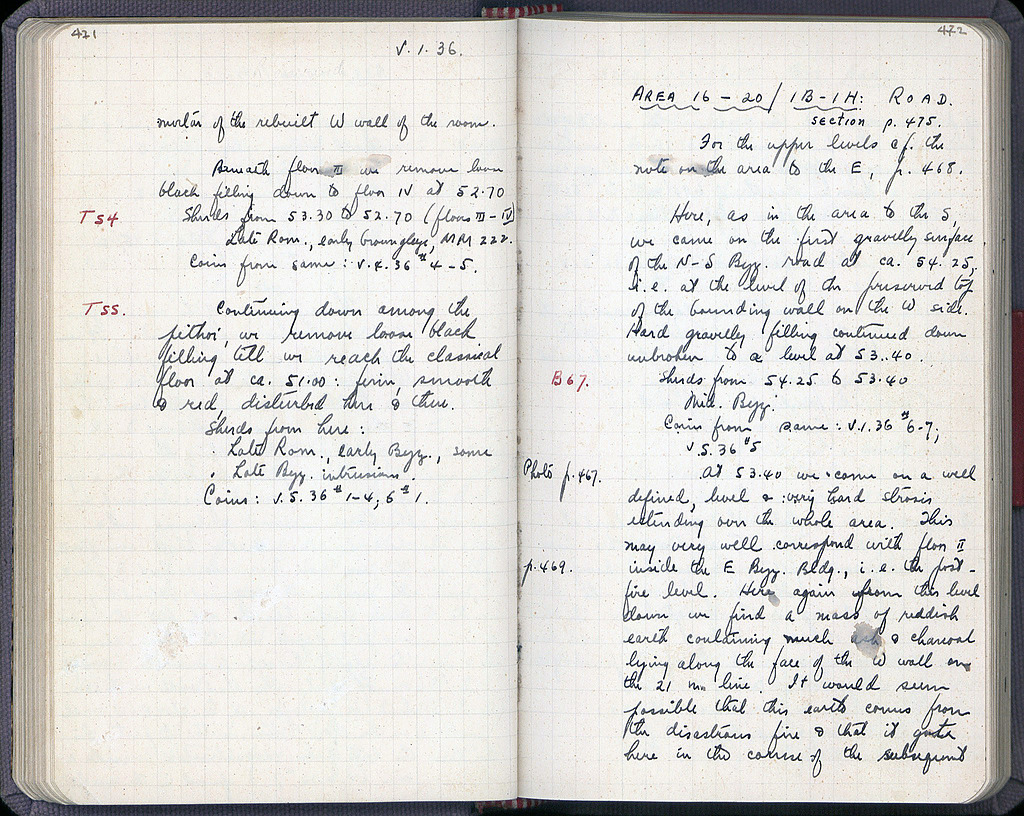 471
V. 1. 36.
mortar of the rebuilt W wall of the room.
Beneath floor III we remove loose
black filling down to floor IV at 52.70
TS4
Sherds from 53.30 to 52.70 (floors III – IV)
Late Rom., early brown glaze, MM 222.
Coins from same: V. 4. 36 # 4 – 5.
TS5.
Continuing down among the
pithoi, we remove loose black
filling till we reach the classical
floor at ca. 51.00: firm, smooth
& red, disturbed here & there.
Sherds from here:
Late Rom., early Byz., some
Late Byz. intrusions.
Coins: V. 5. 36 # 1–4; 6 # 1.
472
AREA 16 – 20 / 1B – 1H: ROAD.
section p. 475.
For the upper levels cf. the
note on the area to the E, p. 468.
Here, as in the area to the S,
we came on the first gravelly surface
of the N–S Byz. road at ca. 54.25,
i.e. at the level of the preserved top
of the bounding wall on the W side.
Hard gravelly filling continued down
unbroken to a level at 53.40.
B67.
Sherds from 54.25 to 53.40
Mid. Byz.
Coins from same: V. 1. 36 # 6–7;
V. 5. 36 # 5
Photo p. 467.
At 53.40 we come on a well
defined, level & very hard strosis
extending over the whole area. This
may very well correspond with floor II
p. 469.
inside the E Byz. Bldg., i.e. the post-
fire level. Here again from this level
down we find a mass of reddish
earth containing much ash & charcoal
lying along the face of the W wall on
the 21 m line. It would seem
possible that this earth comes from
the disastrous fire & that it got
here in the course of the subsequent